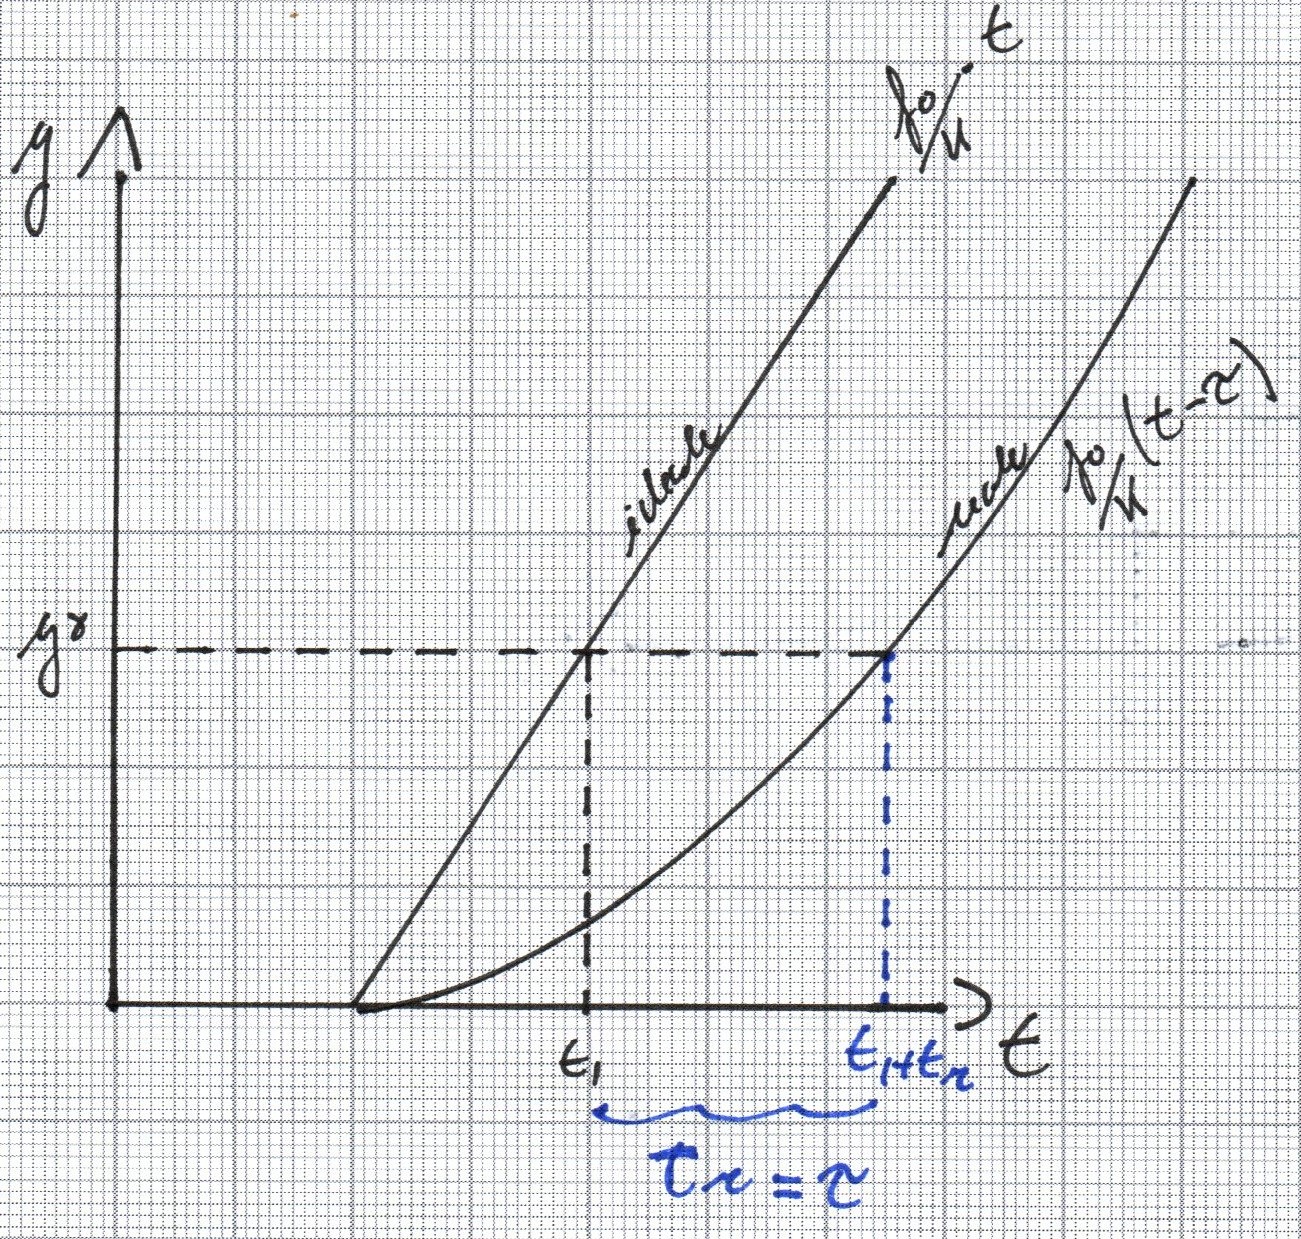 y
f₀/k · t
ideale
reale
f₀/k (t-τ)
t₁
t₁+tᵣ
t
Tᵣ = τ